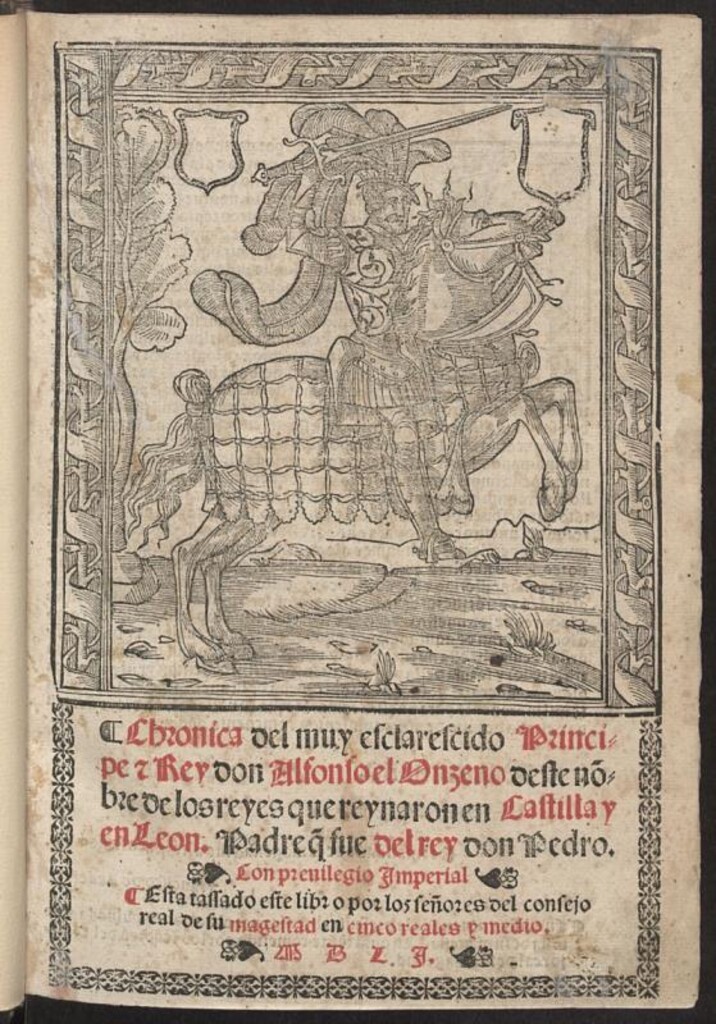 ¶ Chronica del muy esclarescido Princi-
pe ⁊ Rey don Alfonso el Onzeno deste nõ-
bre de los reyes que reynaron en Castilla y
en Leon. Padre q̃ fue del rey don Pedro.
Con preuilegio Imperial
¶ Esta tassado este libro por los señores del consejo
real de su magestad en cinco reales y medio.
M D L J.